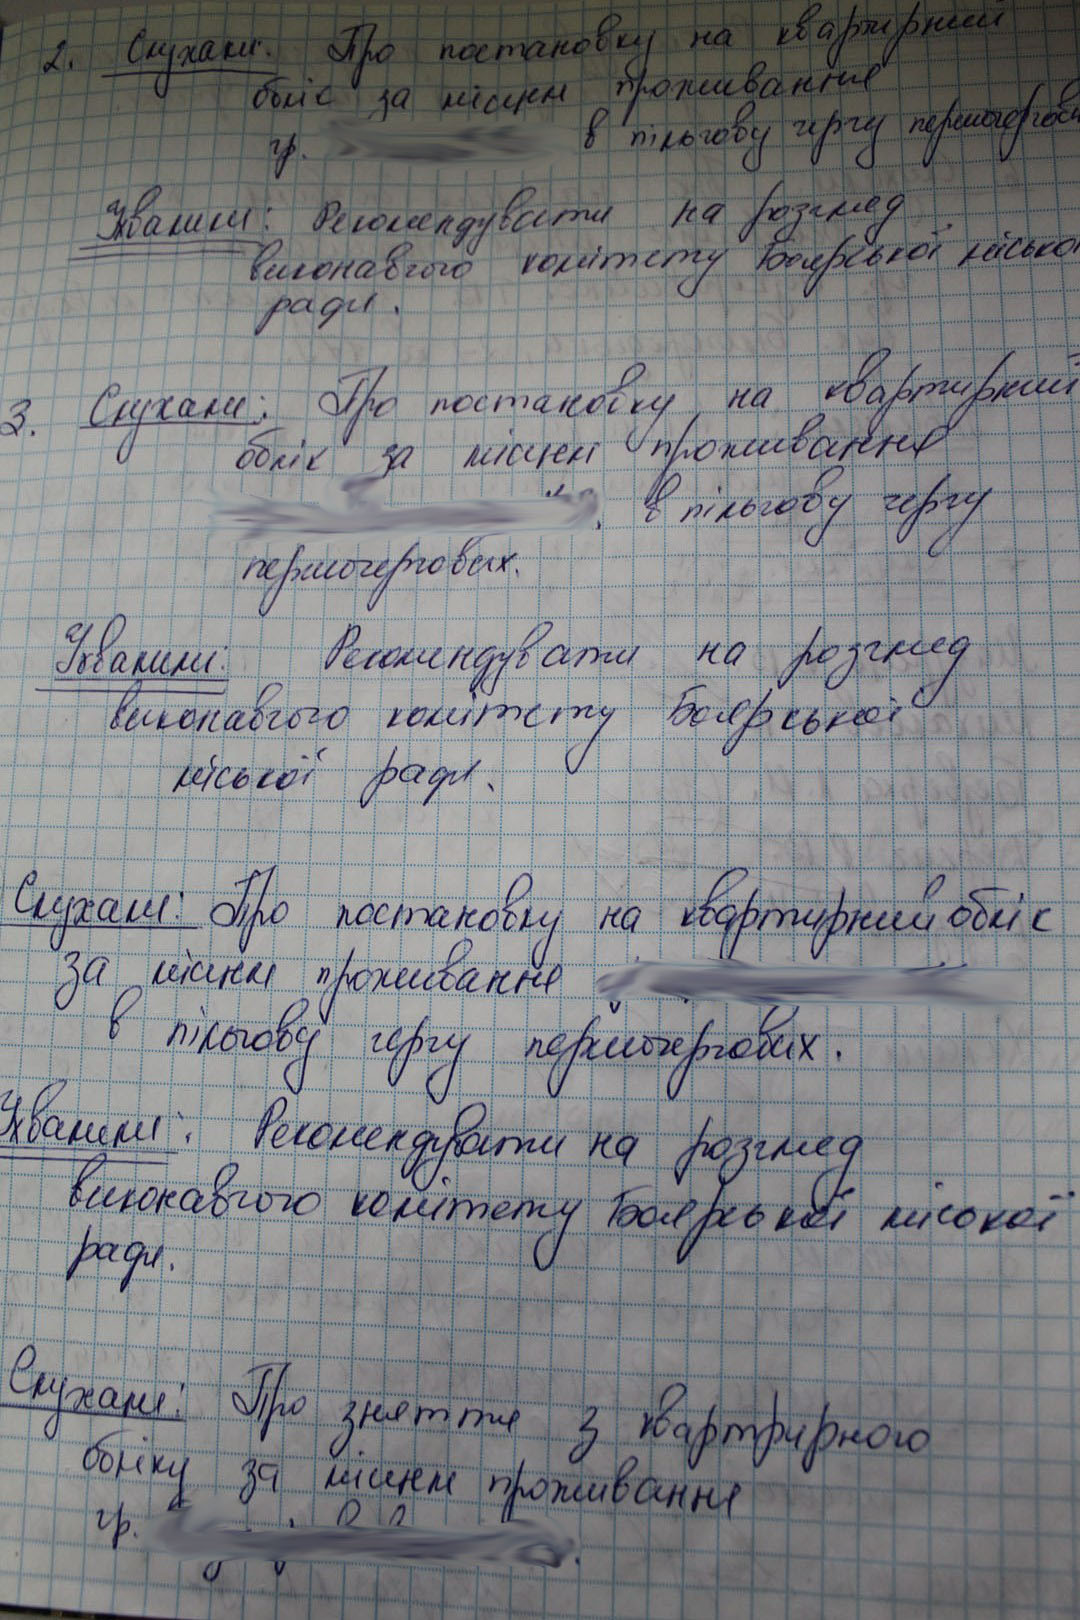 2. Слухали: Про постановку на квартирний
облік за місцем проживання
гр. в пільгову чергу першочергових
Ухвалили: Рекомендувати на розгляд
виконавчого комітету Боярської міської
ради.
3. Слухали: Про постановку на квартирний
облік за місцем проживання
в пільгову чергу
першочергових.
Ухвалили: Рекомендувати на розгляд
виконавчого комітету Боярської
міської ради.
Слухали: Про постановку на квартирний облік
за місцем проживання
в пільгову чергу першочергових.
Ухвалили: Рекомендувати на розгляд
виконавчого комітету Боярської міської
ради.
Слухали: Про зняття з квартирного
обліку за місцем проживання
гр.